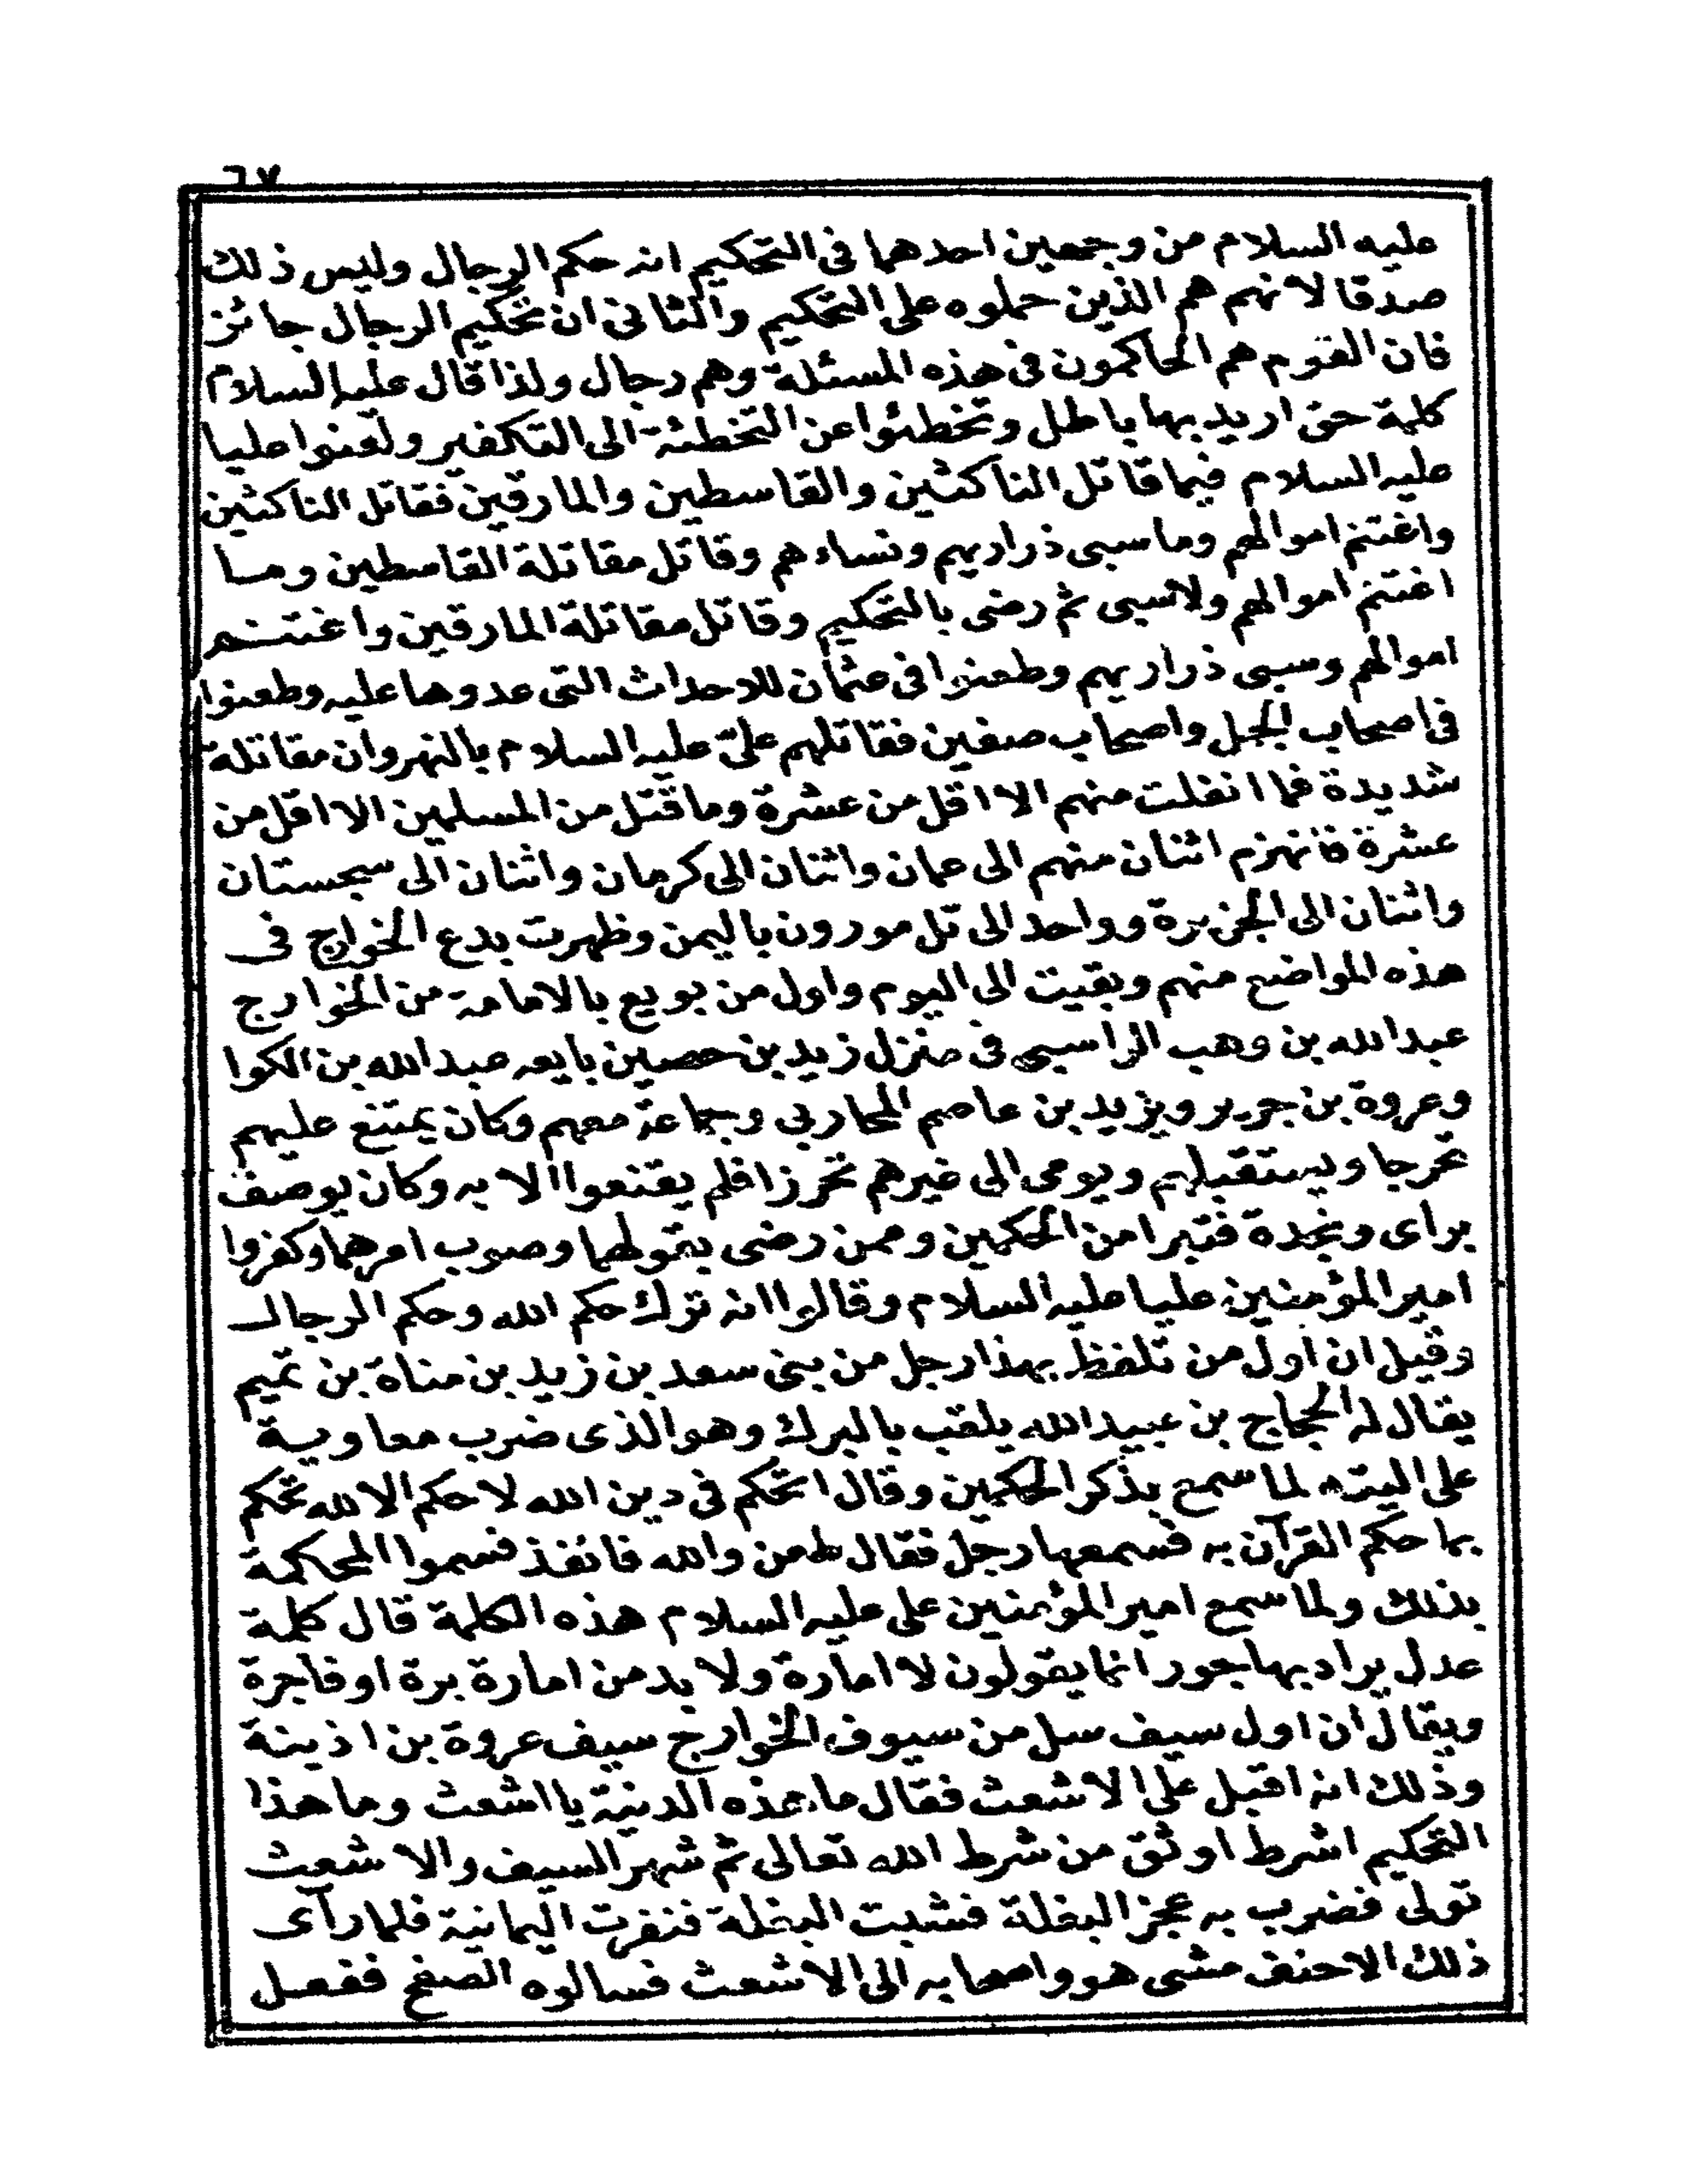 ٦٧
عليه السلام من وجهين احدهما فى التحكيم انه حكم الرجال وليس ذلك
صدقا لانهم هم الذين حملوه على التحكيم والثانى ان تحكيم الرجال جائز
فان القوم هم الحاكمون فى هذه المسئلة وهم رجال ولذا قال عليه السلام
كلمة حق اريد بها باطل وتخطئوا عن التخطئة الى التكفير ولعنوا عليا
عليه السلام فيما قاتل الناكثين والقاسطين والمارقين فقاتل الناكثين
واغتنم اموالهم وما سبى ذراريهم ونساءهم وقاتل مقاتلة القاسطين وما
اغتنم اموالهم ولاسبى ثم رضى بالتحكيم وقاتل مقاتلة المارقين واغتنم
اموالهم وسبى ذراريهم وطعنوا فى عثمان للاحداث التى عدوها عليه وطعنوا
فى اصحاب الجمل واصحاب صفين فقاتلهم علىّ عليه السلام بالنهروان مقاتلة
شديدة فما انفلت منهم الا اقل من عشرة وما قتل من المسلمين الا اقل من
عشرة فانهزم اثنان منهم الى عمان واثنان الى كرمان واثنان الى سجستان
واثنان الى الجزيرة وواحد الى تل مورون باليمن وظهرت بدع الخوارج فى
هذه المواضع منهم وبقيت الى اليوم واول من بويع بالامامة من الخوارج
عبدالله بن وهب الراسبى فى منزل زيد بن حصين بايعه عبدالله بن الكوا
وعروة بن جرير ويزيد بن عاصم المحاربى وجماعة معهم وكان يمتنع عليهم
تحرجا ويستقبلهم ويومى الى غيرهم تحرزا فلم يقنعوا الا به وكان يوصف
براى ونجدة فتبرا من الحكمين وممن رضى بتولهما وصوب امرهما وكفروا
امير المؤمنين عليا عليه السلام وقالوا انه ترك حكم الله وحكم الرجال
وقيل ان اول من تلفظ بهذا رجل من بنى سعد بن زيد بن مناة بن تميم
يقال له الحجاج بن عبيدالله يلقب بالبرك وهو الذى ضرب معاوية
على اليته لما سمع بذكر الحكمين وقال اتحكم فى دين الله لا حكم الا لله تحكم
بما حكم القرآن به فسمعها رجل فقال طعن والله فانفذ فسموا المحاكمة
بذلك ولما سمع امير المؤمنين على عليه السلام هذه الكلمة قال كلمة
عدل يراد بها جور انما يقولون لا امارة ولا بد من امارة برة او فاجرة
ويقال ان اول سيف سل من سيوف الخوارج سيف عروة بن اذينة
وذلك انه اقبل على الاشعث فقال ما هذه الدنية يا اشعث وما هذا
التحكيم اشرط اوثق من شرط الله تعالى ثم شهر السيف والاشعث
تولى فضرب به عجز البغلة فشبت البغلة فنفرت اليمانية فلما رآى
ذلك الاحنف مشى هو واصحابه الى الاشعث فسالوه الصفح ففعل